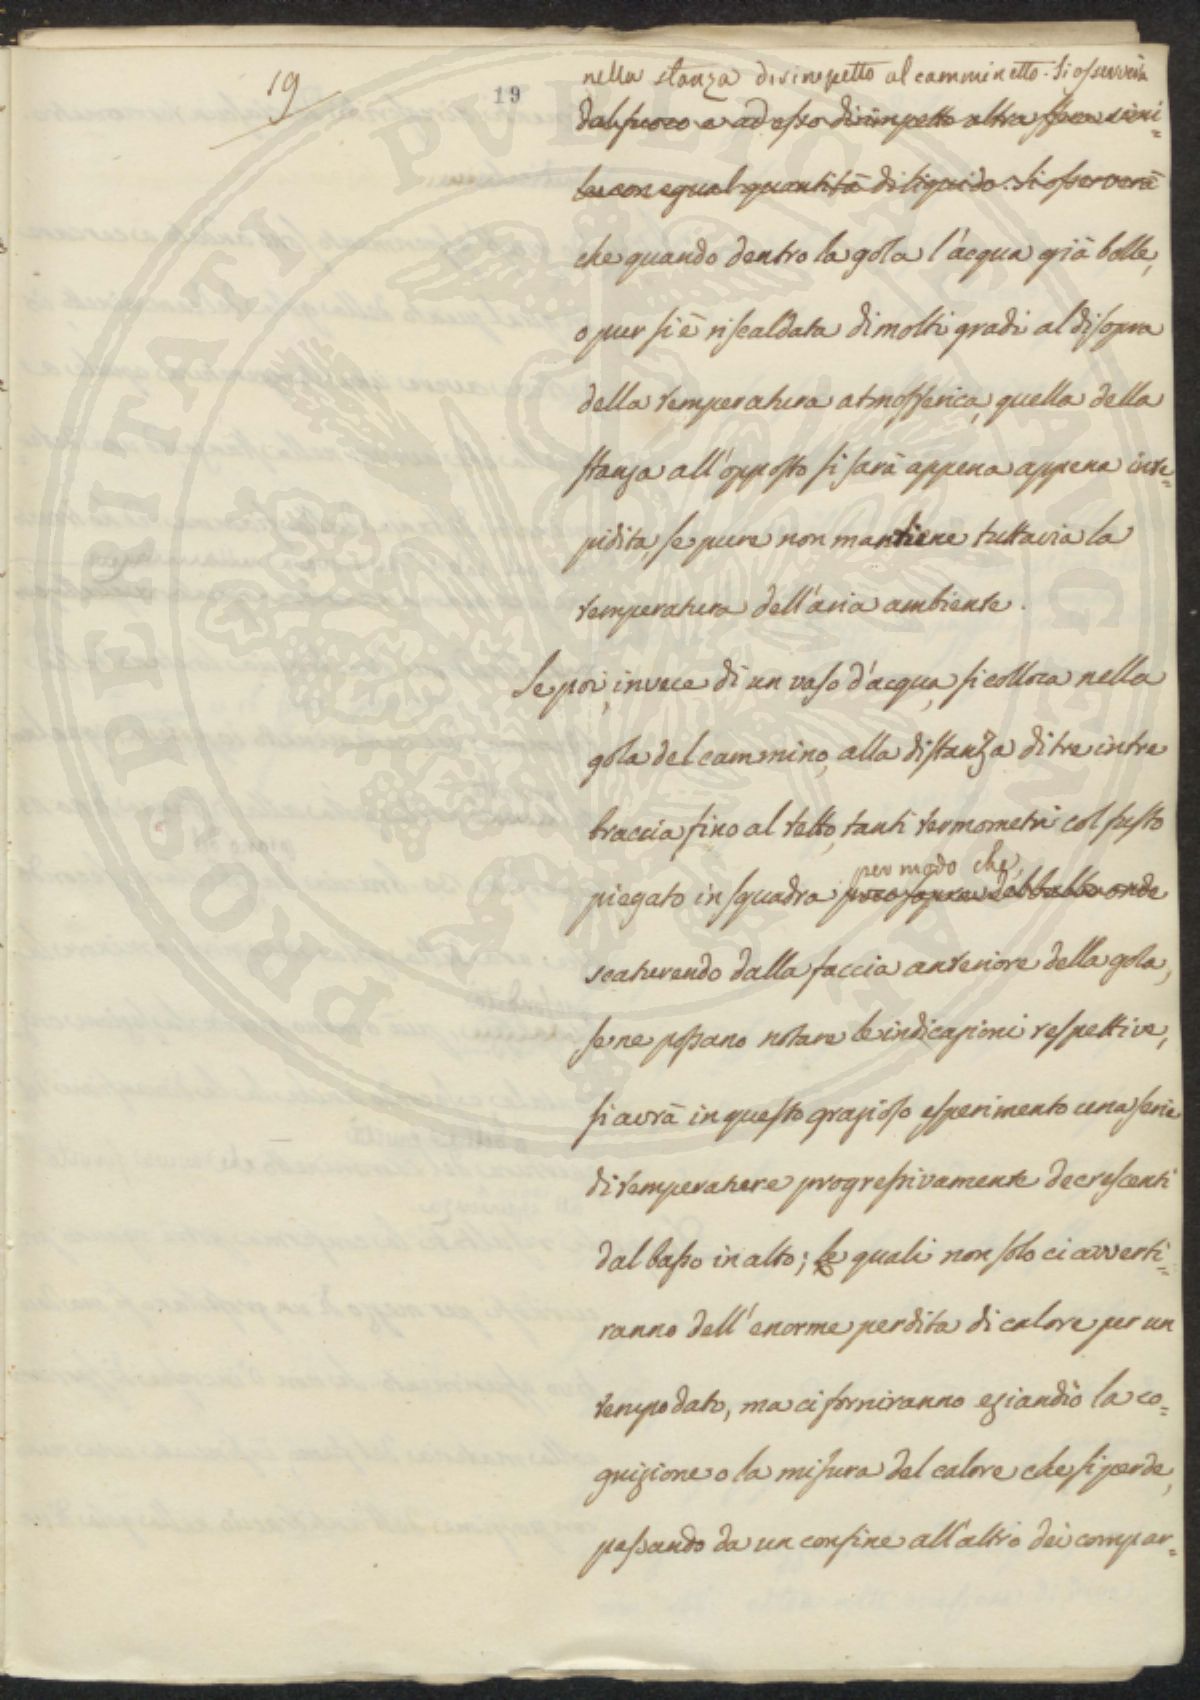 19
19
nella stanza dirimpetto al camminetto. Si osserverà
dal fuoco e ad esso dirimpetto altra simi=
le con egual quantità di liquido. Si osserverà
che quando dentro la gola l'acqua già bolle,
o pur si è riscaldata di molti gradi al disopra
della temperatura atmosferica, quella della
stanza all'opposto si sarà appena appena inte=
pidita, se pure non mantiene tuttavia la
temperatura dell'aria ambiente.
Se poi, invece di un vaso d'acqua, si colloca nella
gola del cammino, alla distanza di tre in tre
braccia fino al tetto, tanti termometri col fusto
per modo che,
piegato in squadra poco sopra del bulbo onde
scaturendo dalla faccia anteriore della gola,
se ne possano notare le indicazioni respettive,
si avrà in questo grazioso esperimento una serie
di temperature progressivamente decrescenti
dal basso in alto; le quali non solo ci avverti=
ranno dell'enorme perdita di calore per un
tempo dato, ma ci forniranno eziandio la co=
gnizione o la misura del calore che si perde,
passando da un confine all'altro dei compar=
PROSPERITATI PUBLICAE AUGENDAE